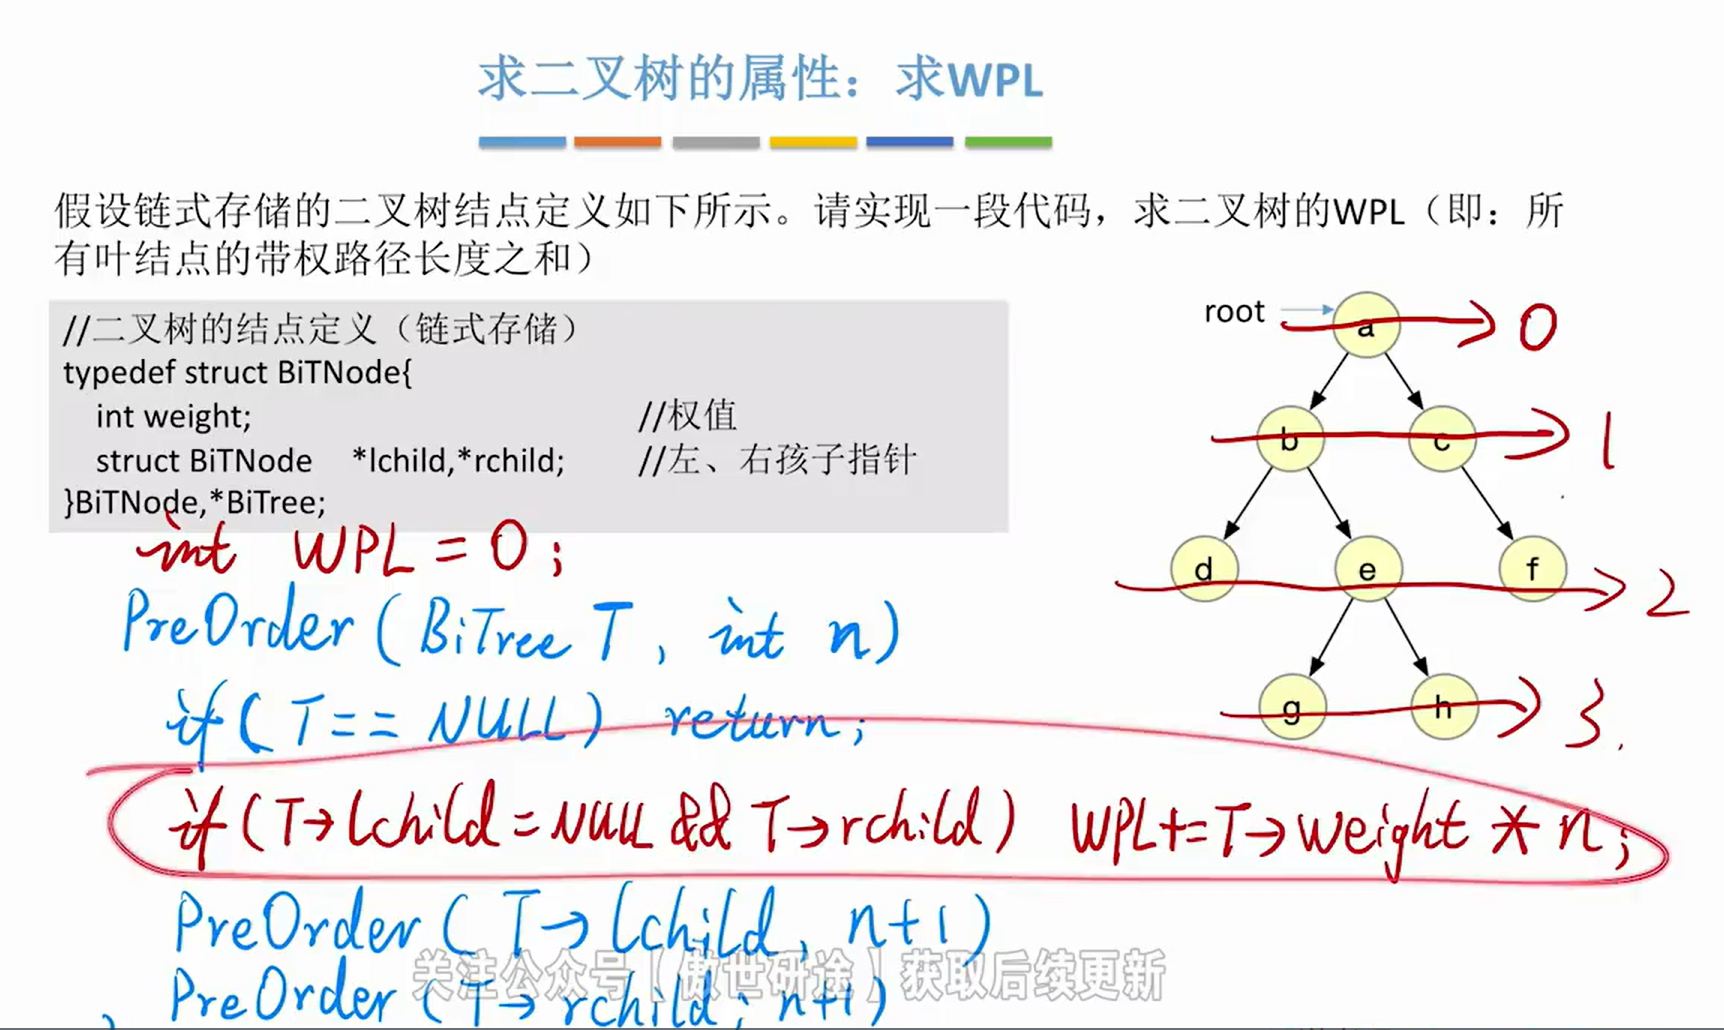 求二叉树的属性：求WPL
假设链式存储的二叉树结点定义如下所示。请实现一段代码，求二叉树的WPL（即：所
有叶结点的带权路径长度之和）
//二叉树的结点定义（链式存储）
typedef struct BiTNode{
int weight; //权值
struct BiTNode *lchild,*rchild; //左、右孩子指针
}BiTNode,*BiTree;
root
a → 0
b c → 1
d e f → 2
g h → 3.
int WPL = 0;
PreOrder (BiTree T, int n)
if( T== NULL) return;
if(T→lchild=NULL && T→rchild) WPL+=T→weight * n;
PreOrder ( T→lchild, n+1)
PreOrder (T→rchild; n+1)
关注公众号【傲世研途】获取后续更新